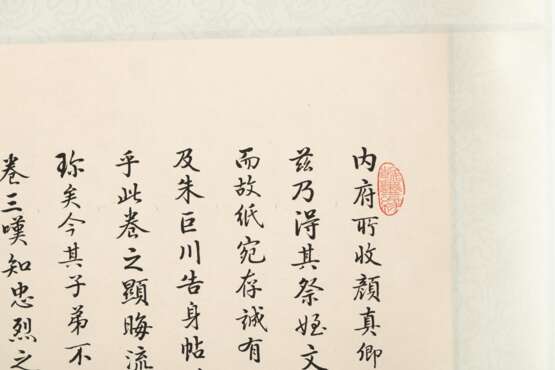 内府所收顏真卿
茲乃得其祭姪文
而故紙宛存誠有
及朱巨川告身帖
乎此卷之顯晦流
珎矣今其子弟不
卷三嘆知忠烈之